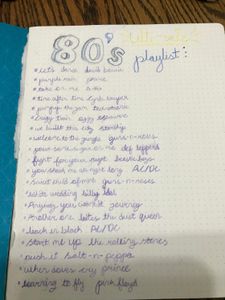 80's
playlist:
let's dance david bowie
purple rain prince
take on me a-ha
time after time cyndi lauper
pump up the jam technotronic
crazy train ozzy osbourne
we built this city starship
welcome to the jungle guns-n-roses
pour some sugar on me def leppard
fight for your right beastie boys
you shook me all night long AC/DC
sweet child of mine guns-n-roses
white wedding billy idol
Anyway you want it journey
Another one bites the dust queen
back in black AC/DC
start me up the rolling stones
push it salt-n-peppa
when doves cry prince
learning to fly pink floyd